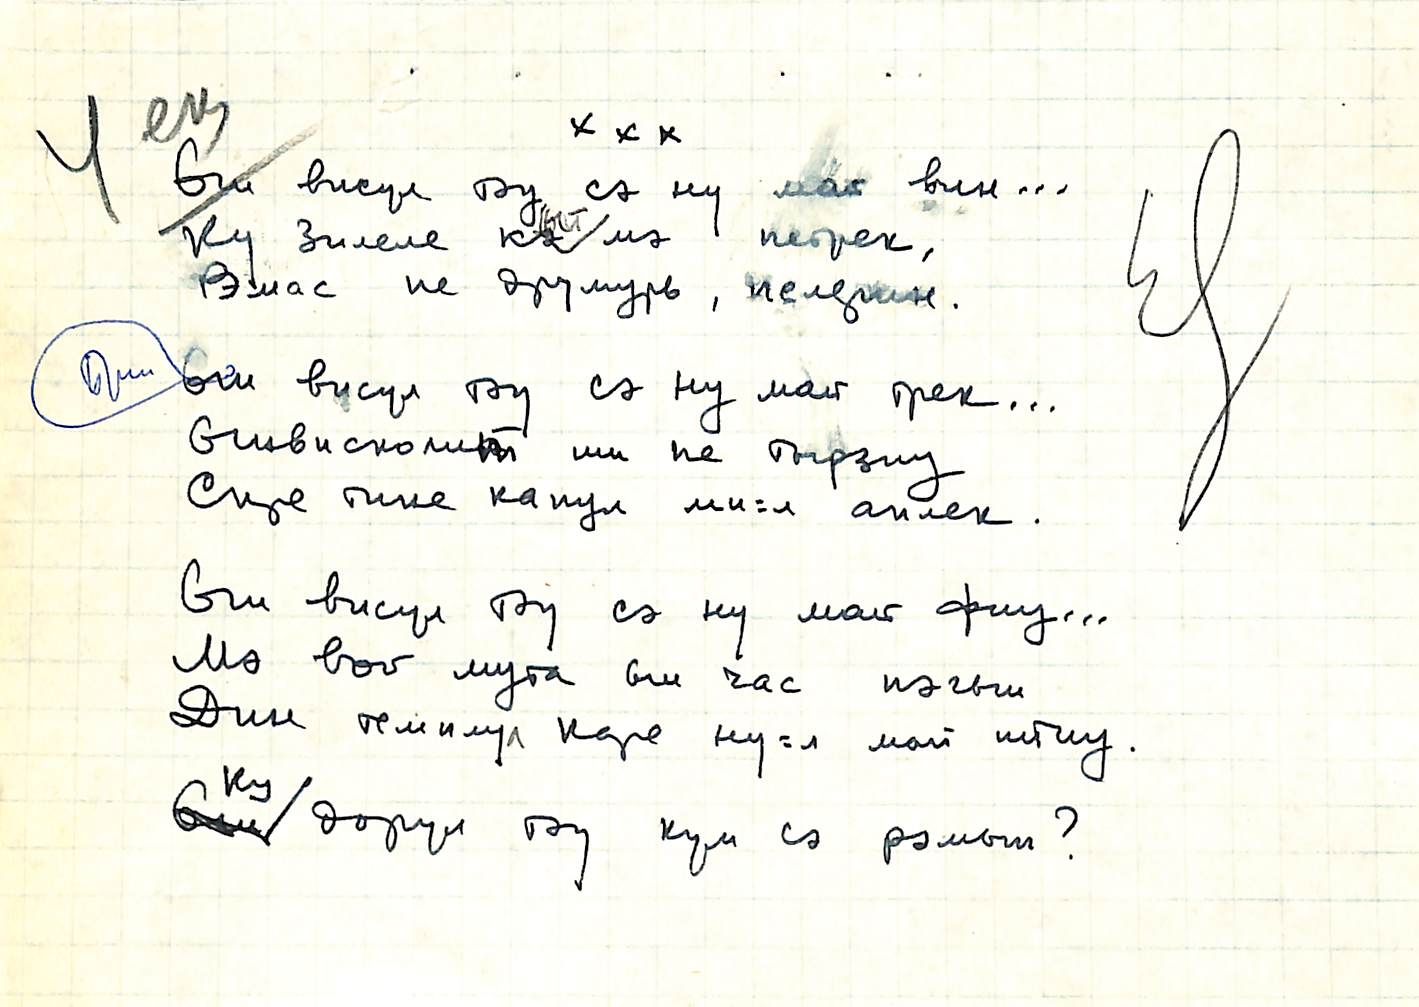 × × ×
Ын висул тэу сэ ну май вин...
Ку зилеле кыт мэ петрек,
Рэмас пе друмурь, пелерин.
Прин висул тэу сэ ну май трек...
Ынвисколит ши пе тырзиу
Спре тине капул ми-л аплек.
Ын висул тэу сэ ну май фиу...
Мэ вой мута ын час пэгын
Дин темплул каре ну-л май штиу.
Ку дорул тэу кум сэ рэмын?